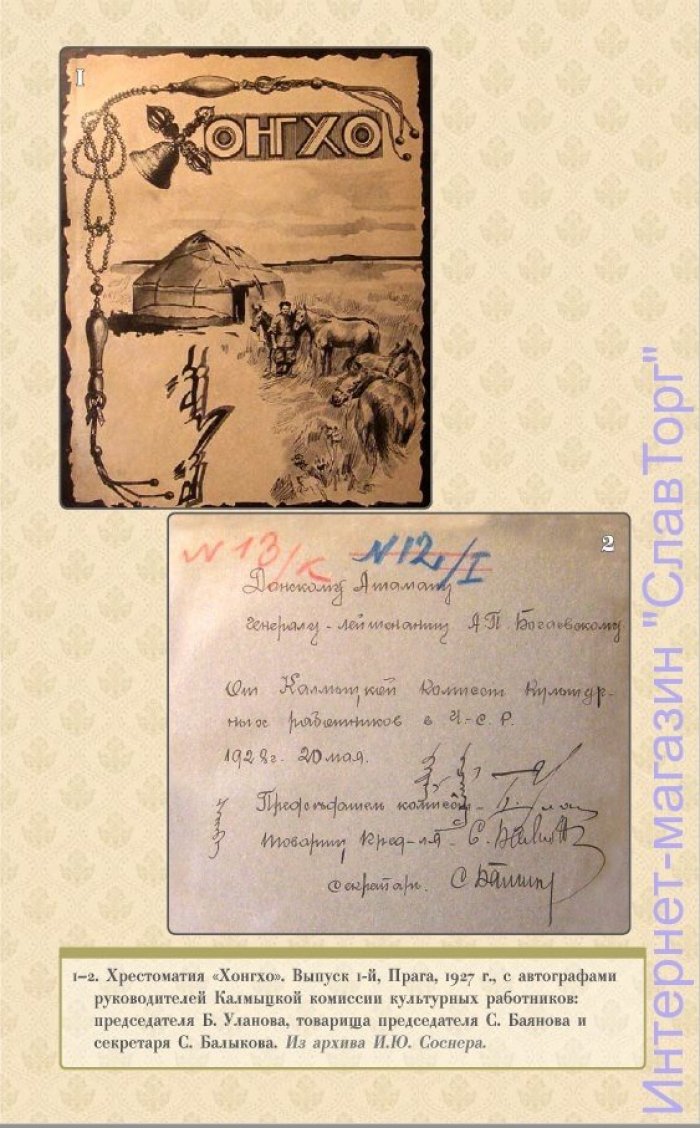 1
ХОНГХО
2
N 13/К N 12/I
Донскому Атаману
Генералу-лейтенанту А.П. Богаевскому
От Калмыцкой Комиссіи Культур-
ных работников в Ч-С.Р.
1928г. 20 мая.
Председатель комиссіи-
товарищ пред-ля-
секретарь.
1–2. Хрестоматия «Хонгхо». Выпуск 1-й, Прага, 1927 г., с автографами
руководителей Калмыцкой комиссии культурных работников:
председателя Б. Уланова, товарища председателя С. Баянова и
секретаря С. Балыкова. Из архива И.Ю. Соснера.
Интернет-магазин "СлавТорг"